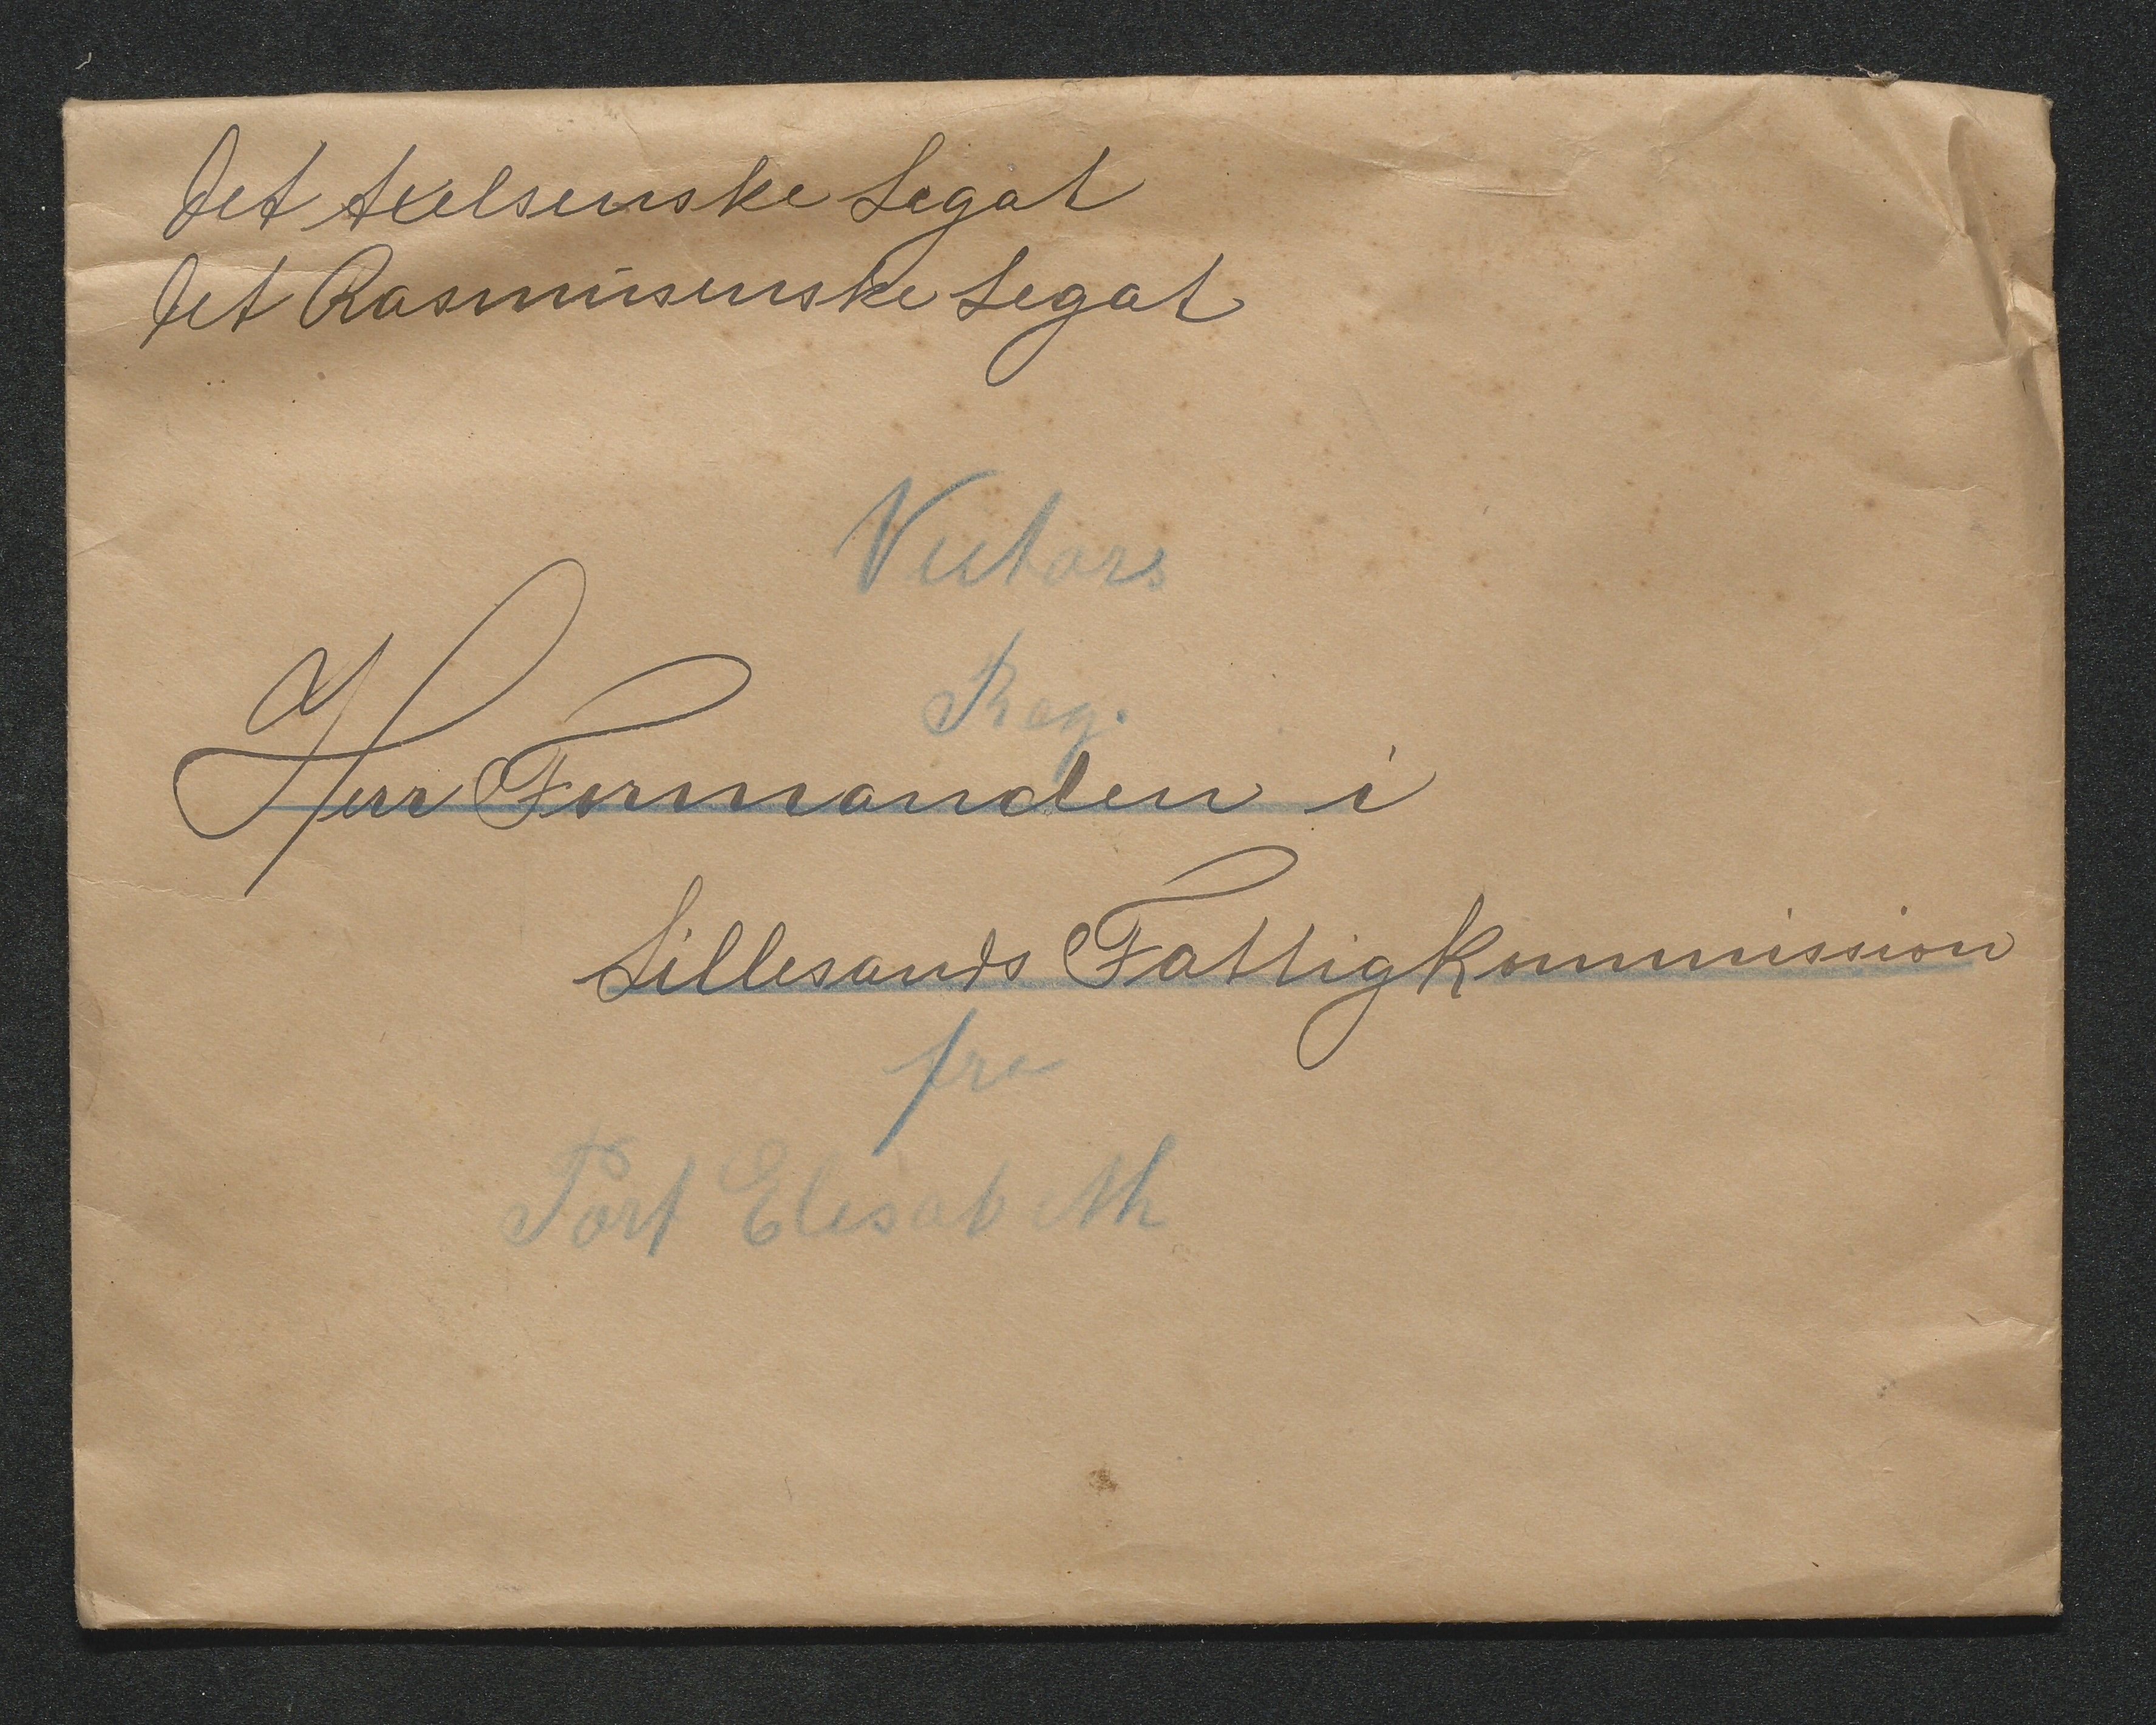 Det Axelsenske Legat
Det Rasmusenske Legat
Victors
Reg.
Herr Formanden i
Lillesands Fattigkommission
fra
Port Elisabeth